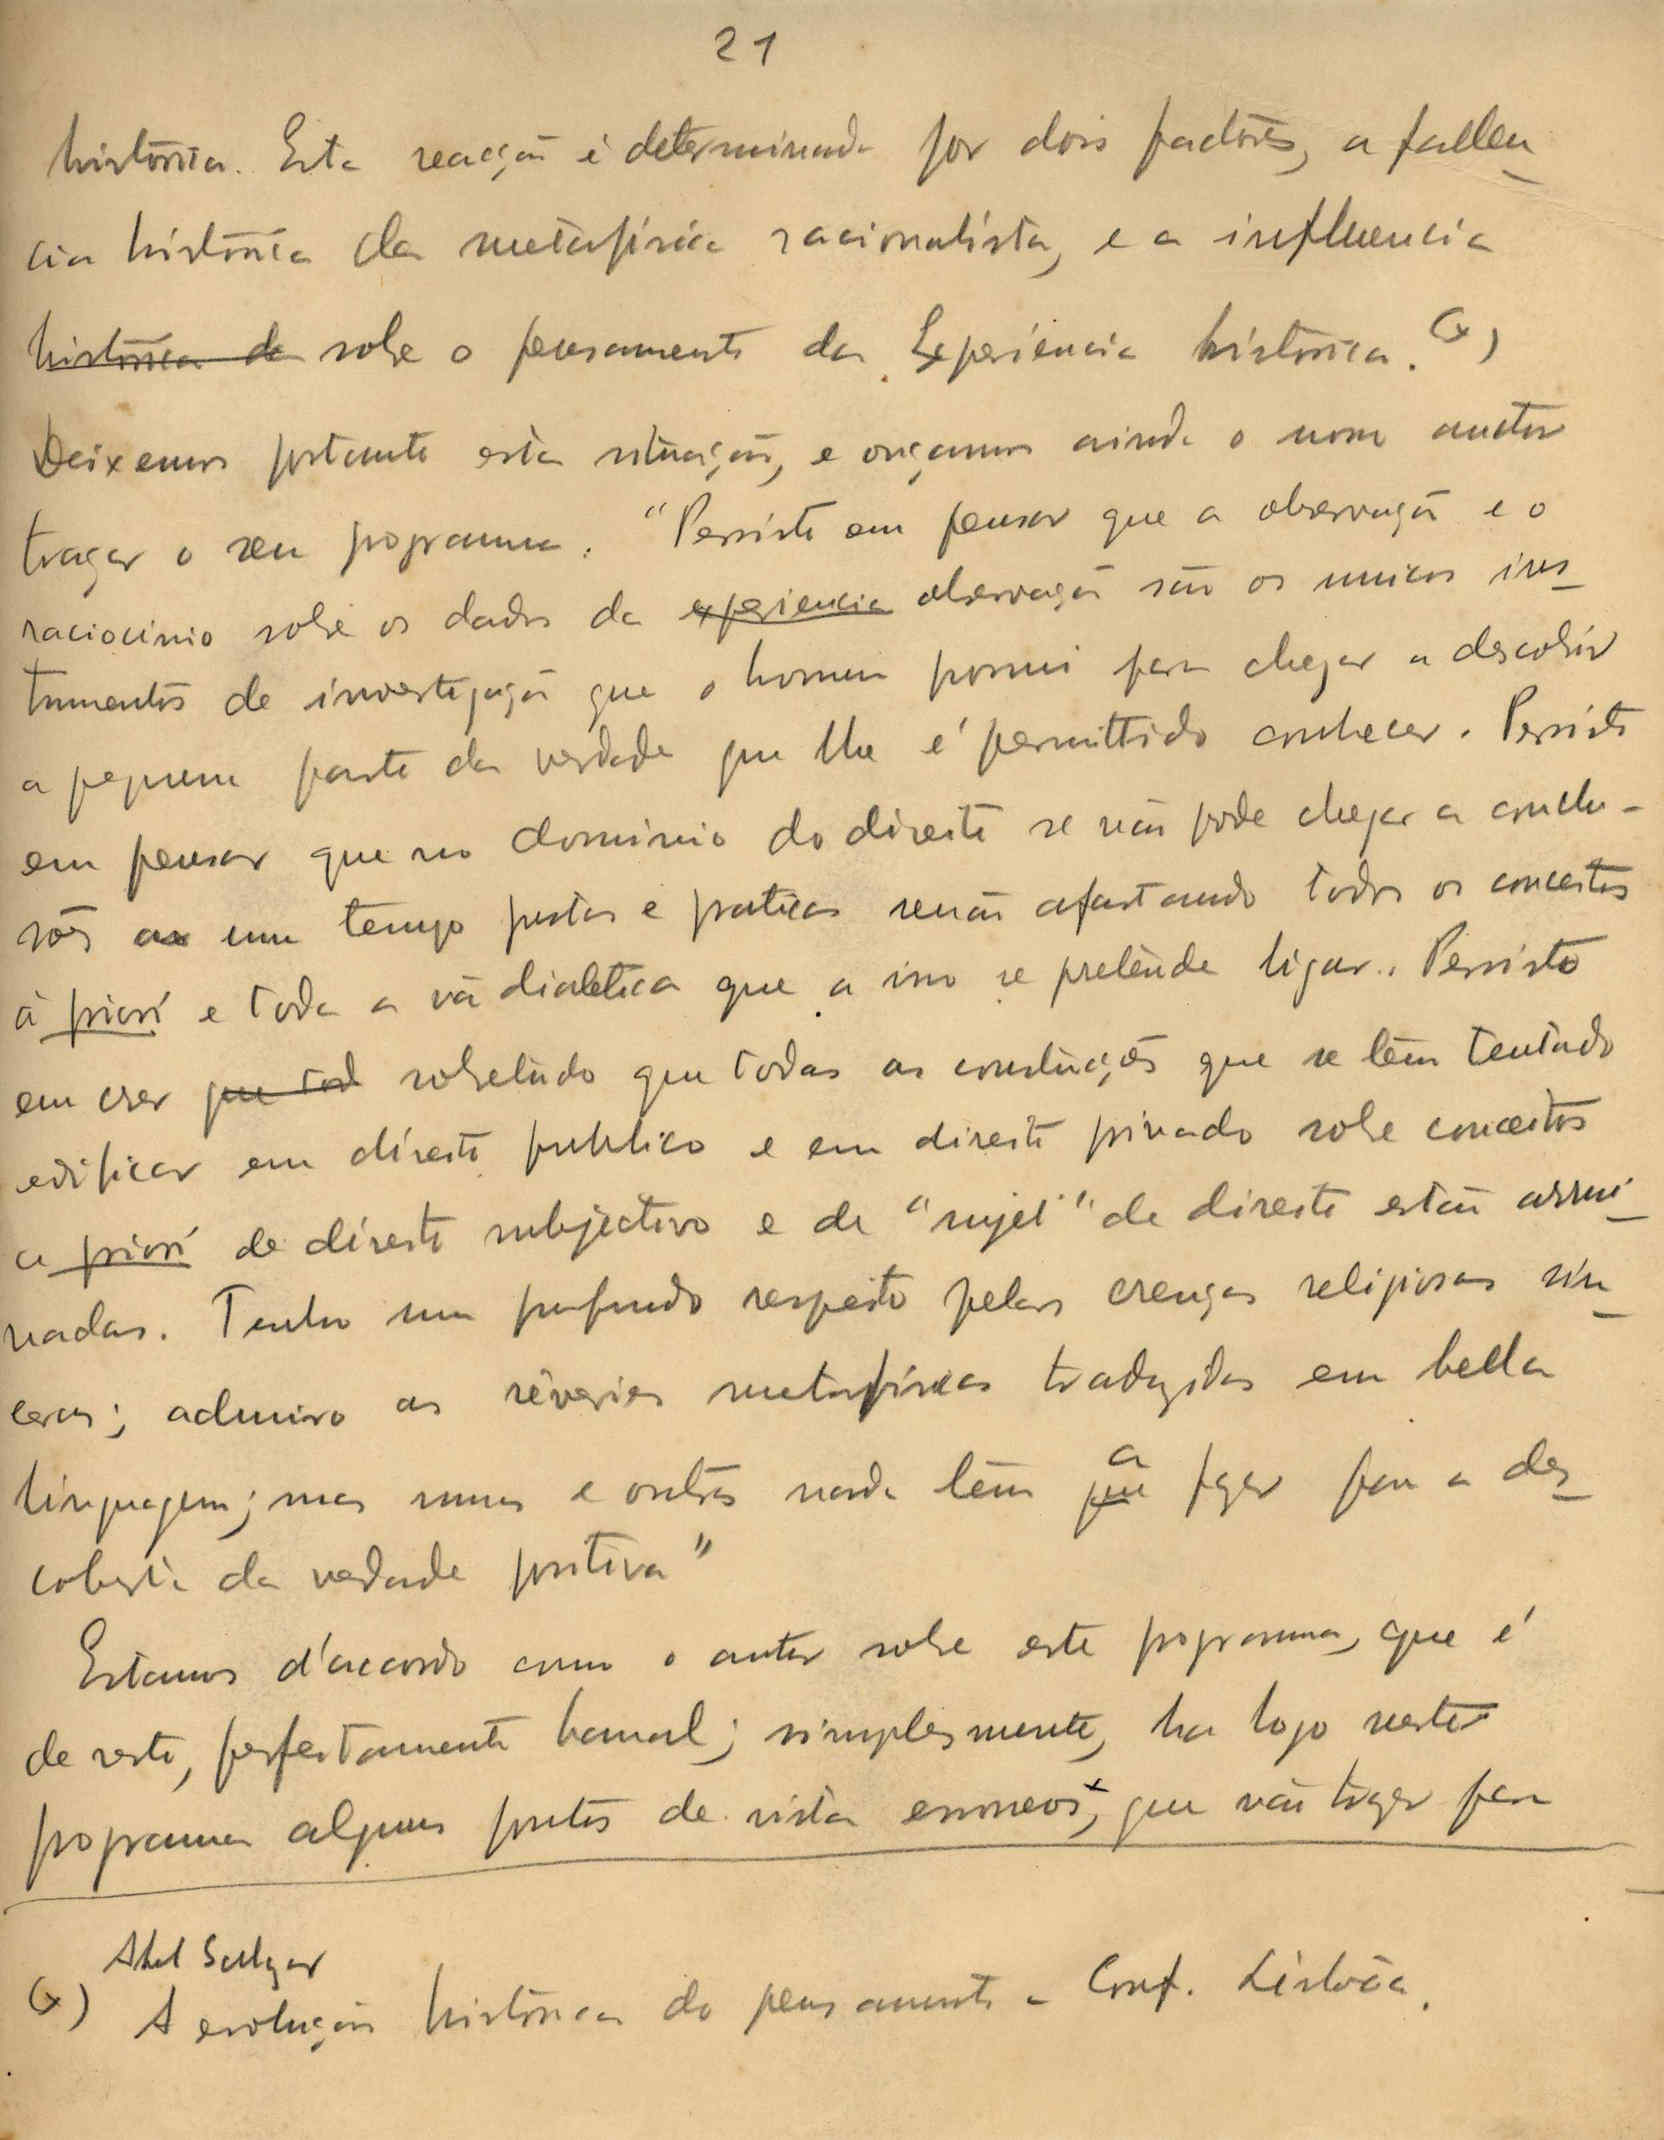 21
história. Esta reacção é determinada por dois factores, a fallen
cia histórica da metafísica racionalista, e a influencia
historica de sobre o pensamento da Experiencia histórica. (x)
Deixemos portanto esta situação, e ouçamos ainda o nosso auctor
traçar o seu programma. "Persisto em pensar que a observação e o
raciocinio sobre os dados da experiencia observação são os unicos ins
trumentos de investigação que o homem possui para chegar a descobrir
a pequena parte da verdade que lhe é permittido conhecer. Persisto
em pensar que no dominio do direito se não pode chegar a conclu-
sões ao um tempo justas e praticas senão afastando todos os conceitos
à priori e toda a vã dialetica que a isso se pretende ligar. Persisto
em crer que tod sobretudo que todas as construções que se têm tentado
edificar em direito publico e em direito privado sobre conceitos
a priori de direito subjectivo e de "sujet" de direito estão arrui
nadas. Tenho um profundo respeito pelas crenças religiosas sin
ceras; admiro as rêveries metafísicas traduzidas em bella
linguagem; mas umas e outras nada têm que a fazer para a des
coberta da verdade positiva"
Estamos d'accordo com o autor sobre este programma, que é
de resto, perfeitamente banal; simplesmente, ha logo neste
programma alguns pontos de vista erroneos, que vão trazer para
Abel Salazar
(x) A evolução histórica do pensamento - Conf. Lisbôa.